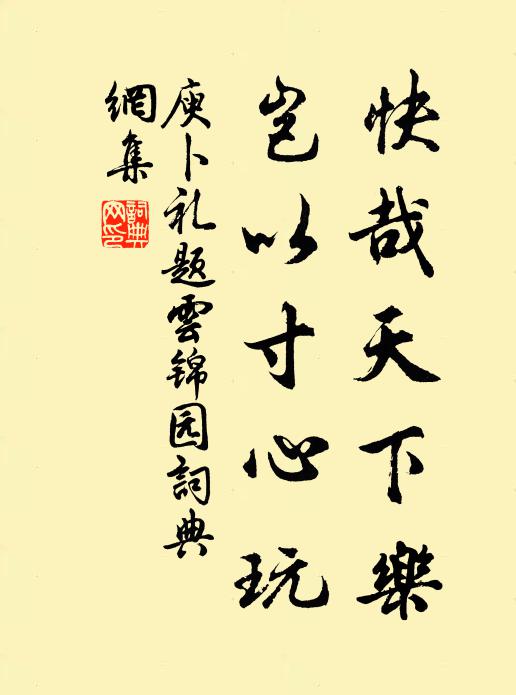 快哉天下樂
豈以寸心玩
庾卜礼题雲锦园詞典
網集
詞典
网印